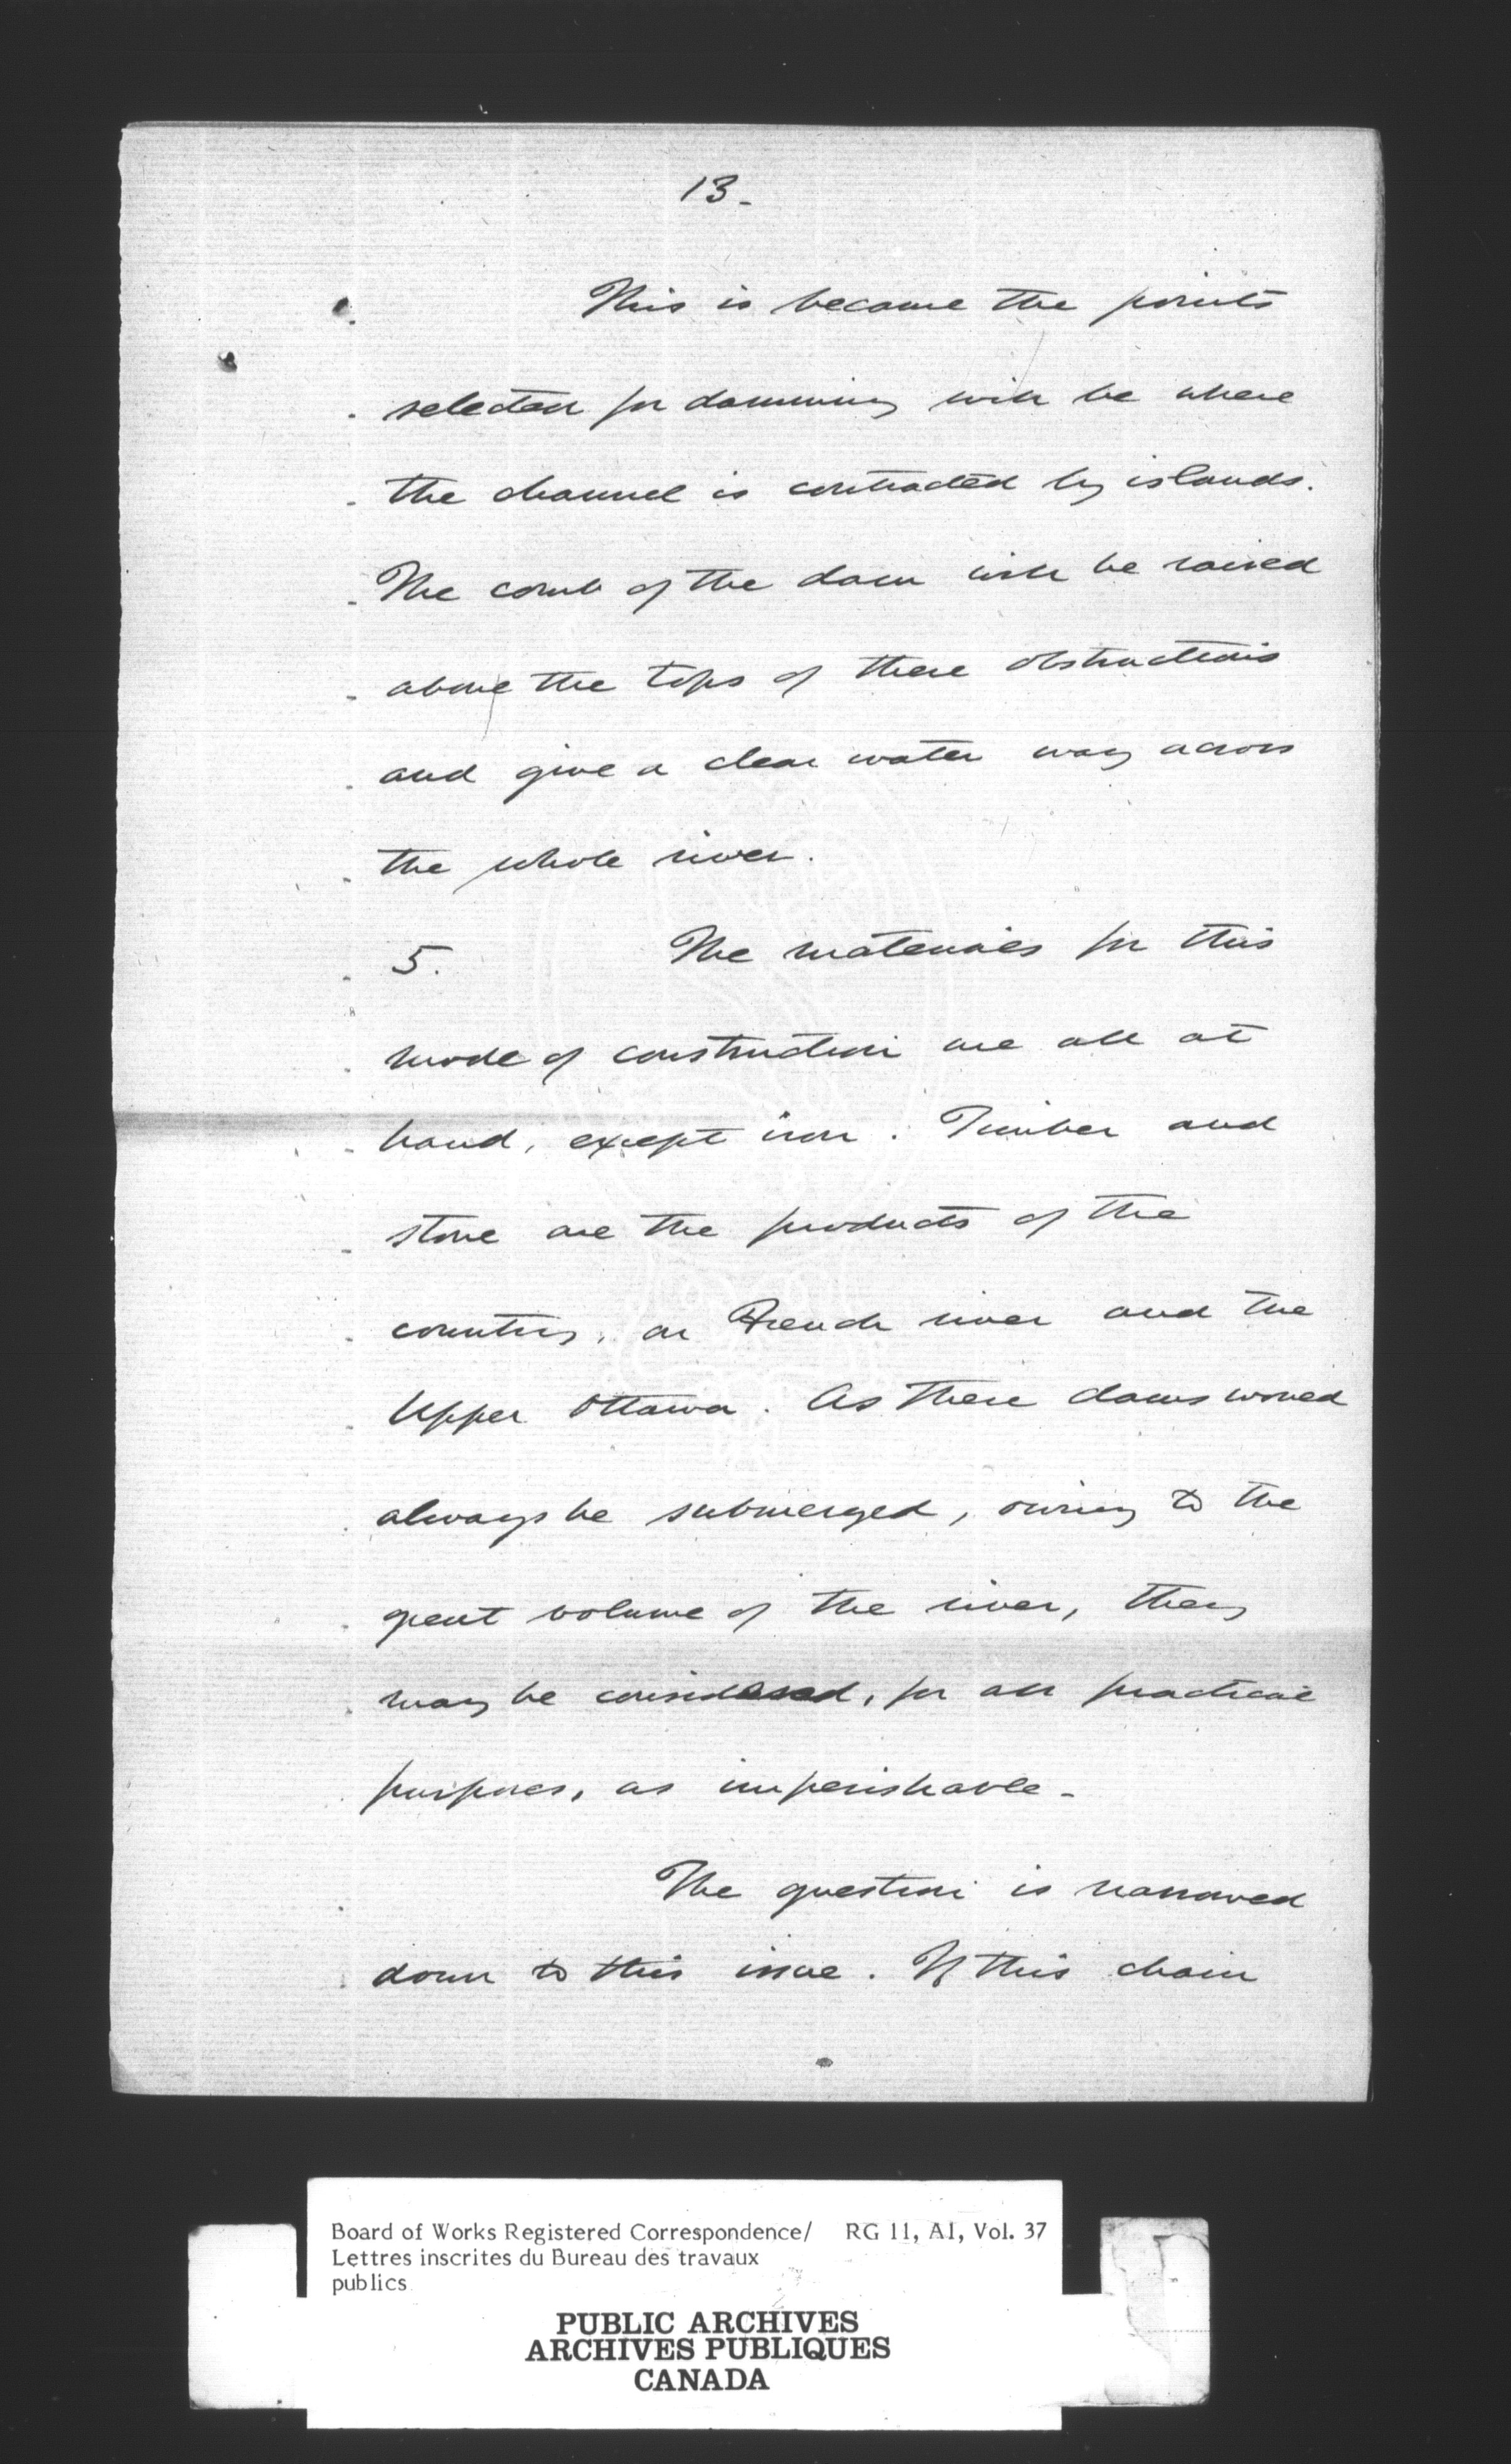 13-
This is because the points
selected for damming will be where
the channel is contracted by islands.
The comb of the dam will be raised
above the tops of these obstructions
and give a clear water way across
the whole river.
5. The materials for this
mode of construction are all at
hand, except iron. Timber and
stone are the products of the
country, on French river and the
Upper Ottawa. As these dams would
always be submerged, owing to the
great volume of the river, they
may be considered, for all practical
purposes, as imperishable-
The question is narrowed
down to this issue. If this chain
Board of Works Registered Correspondence/ RG 11, A1, Vol. 37
Lettres inscrites du Bureau des travaux
publics
PUBLIC ARCHIVES
ARCHIVES PUBLIQUES
CANADA